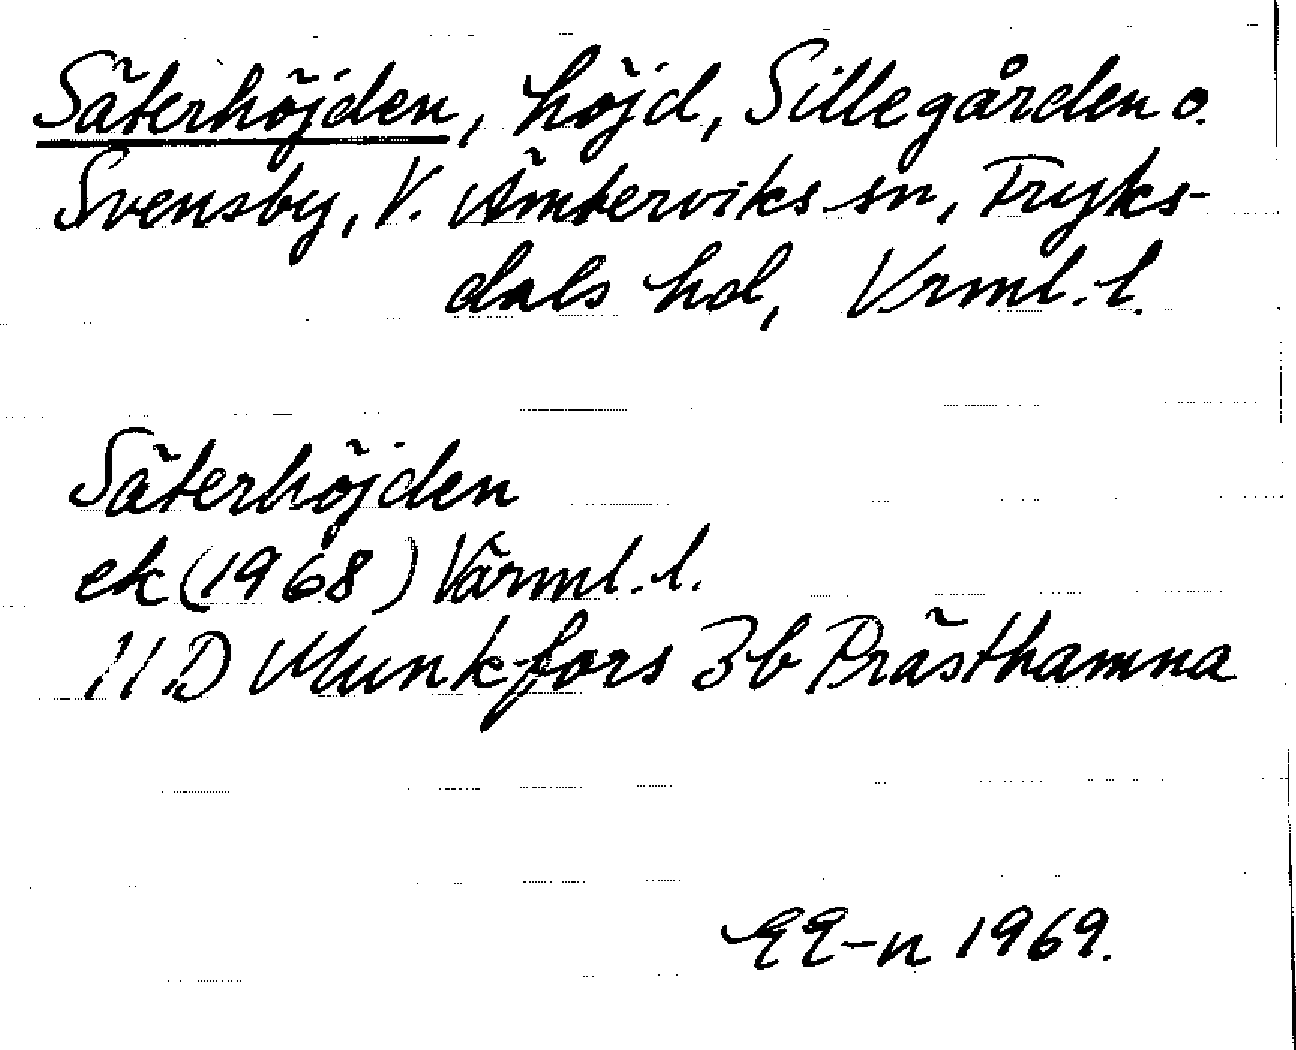 Säterhöjden, höjd, Sillegården o.
Svensby, V. Ämterviks sn, Fryks-
dals hd, Vrml. l.
Säterhöjden
ek (1968) Värml. l.
11 D Munkfors 3b Prästhamna
EE-n 1969.